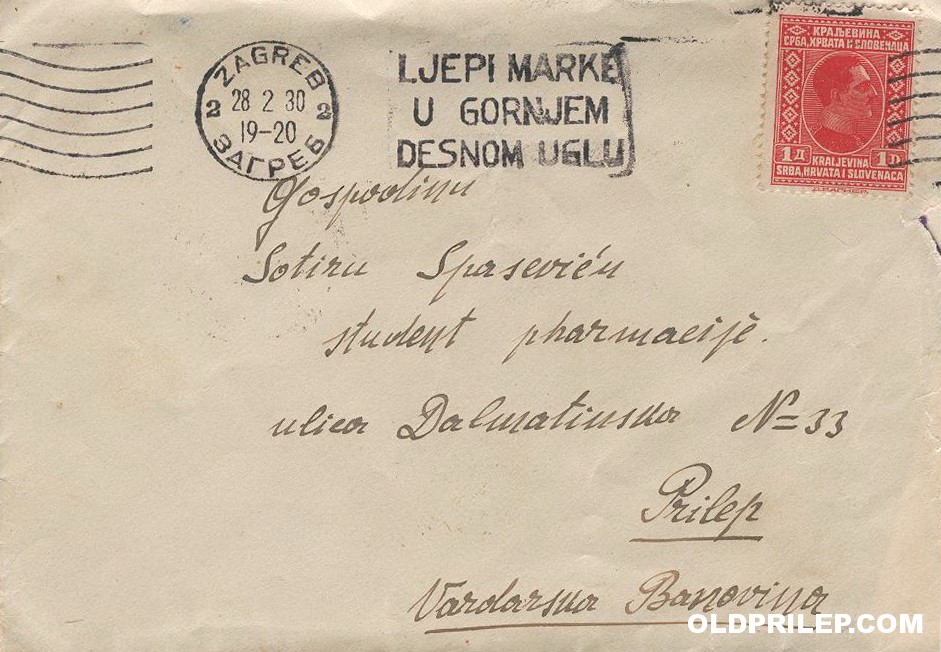 ZAGREB
2 28 2 30 2
19-20
ЗАГРЕБ
LJEPI MARKE
U GORNJEM
DESNOM UGLU
КРАЉЕВИНА
СРБА, ХРВАТА И СЛОВЕНАЦА
1Д 1D
KRALJEVINA
SRBA, HRVATA I SLOVENACA
Gospodinu
Sotiru Spaseviću
student pharmacije.
ulica Dalmatinska N=33
Prilep
Vardarska Banovina
OLDPRILEP.COM